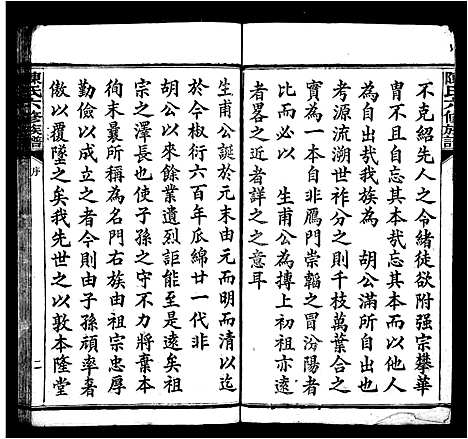 不克紹先人之令緒徒欲附强宗攀華
胄不且自忘其本哉忘其本而以他人
為自出哉我族為　胡公滿所自出也
考源流溯世祚分之則千枝萬葉合之
實為一本非鴈門崇韜之冒汾陽者
比而必以　生甫公為摶上初祖亦遠
者畧之近者詳之之意耳
生甫公誕於元末由元而明而清以迄
於今椒衍六百年瓜綿廿一代非
胡公以來餘業遺烈詎能至是遠矣祖
宗之澤長也使子孫之守不力將棄本
徇末曩所稱為名門右族由祖宗忠厚
勤儉以成立之者今則由子孫頑率奢
傲以覆墜之矣我先世之以敦本隆堂
陳氏六修族譜
序
二